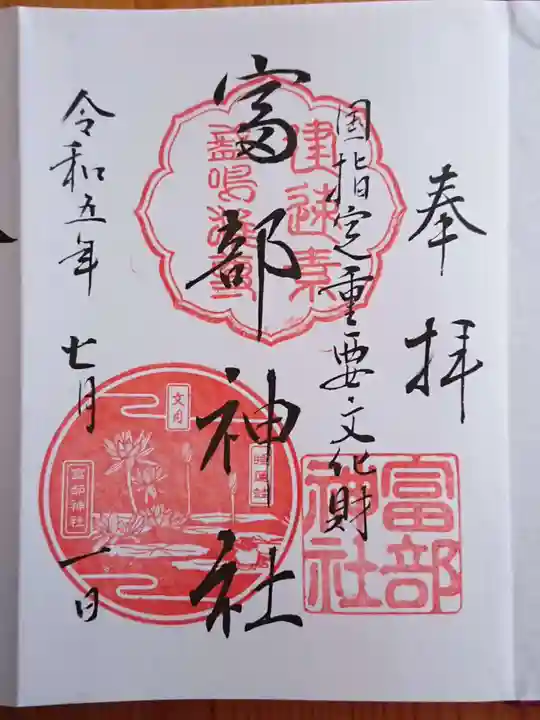 奉拝
国指定重要文化財
富部神社
令和五年七月一日
建速素
盞嗚尊
富部
神社
文月
富部神社